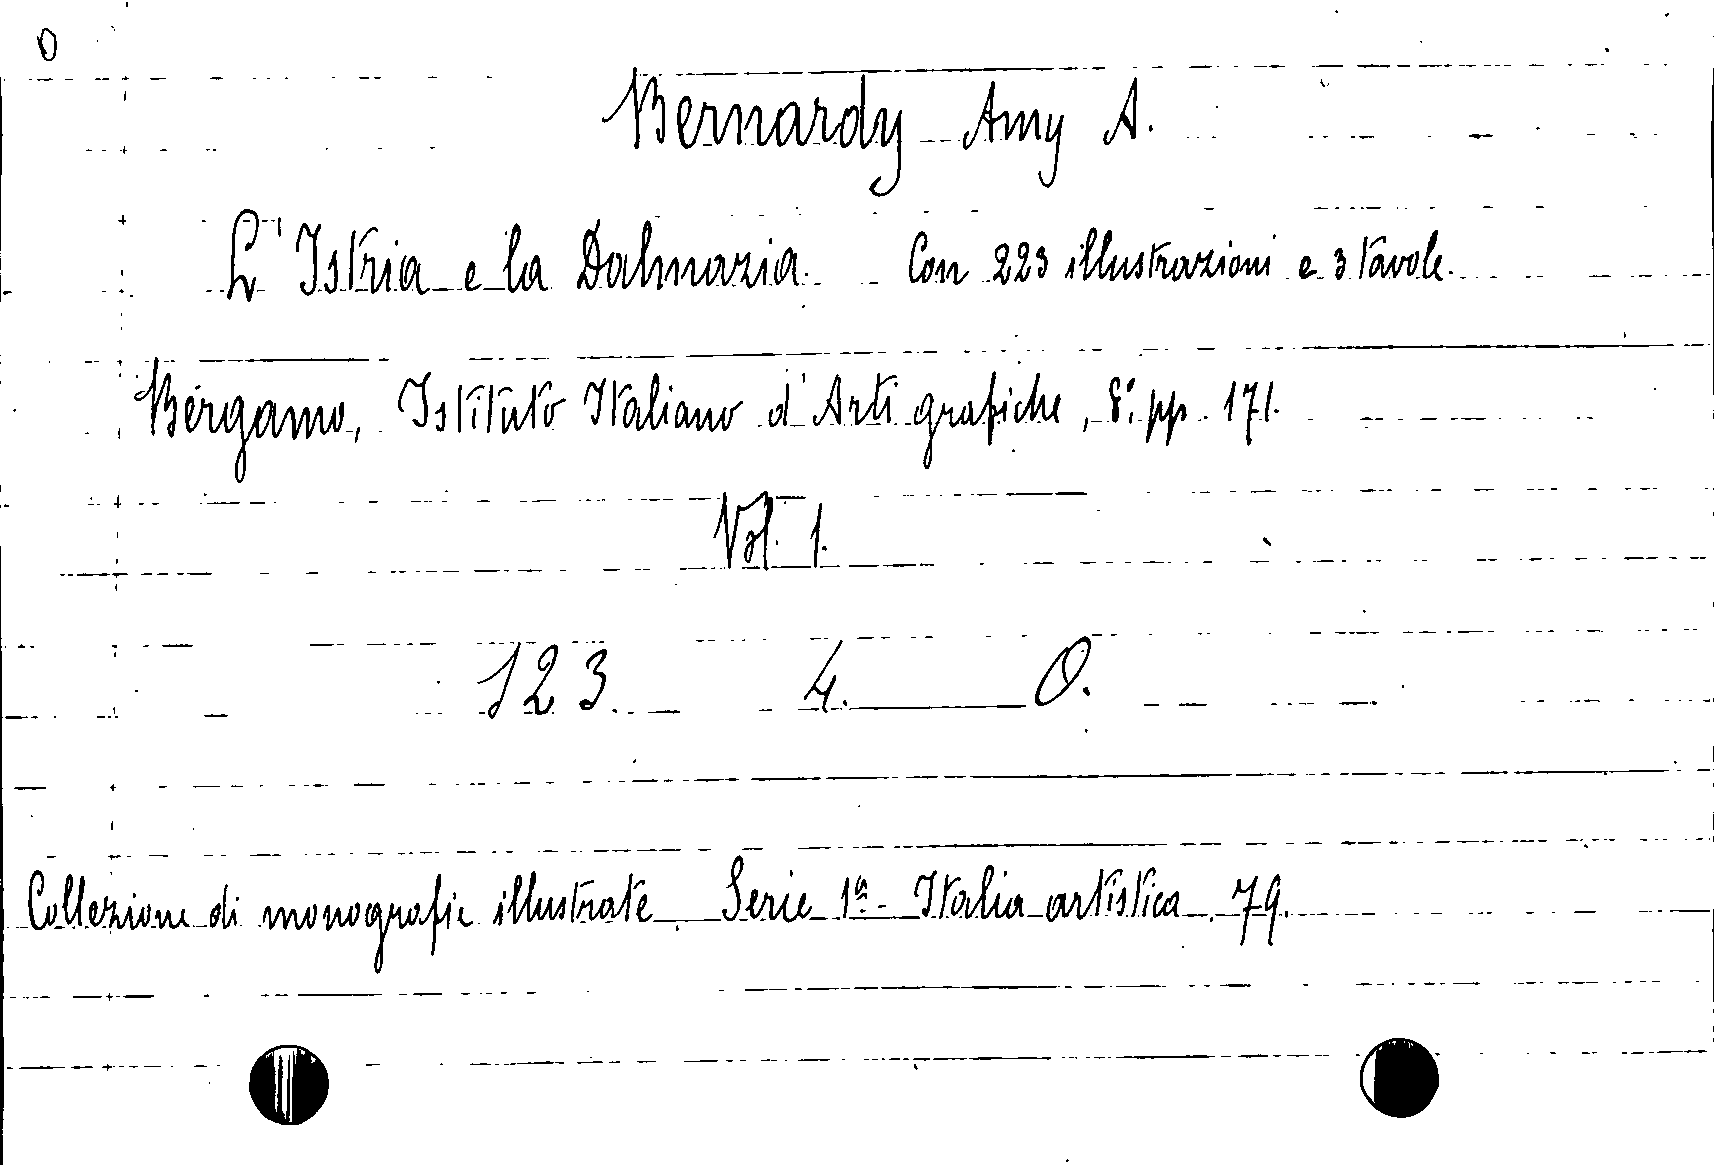 0
Bernardy Amy A.
L'Istria e la Dalmazia. Con 223 illustrazioni e 3 tavole.
Bergamo, Istituto Italiano d'Arti grafiche, 8º. pp. 171.
Vol. 1.
123. 4. O.
Collezione di monografie illustrate. Serie 1ª - Italia artistica. 79.